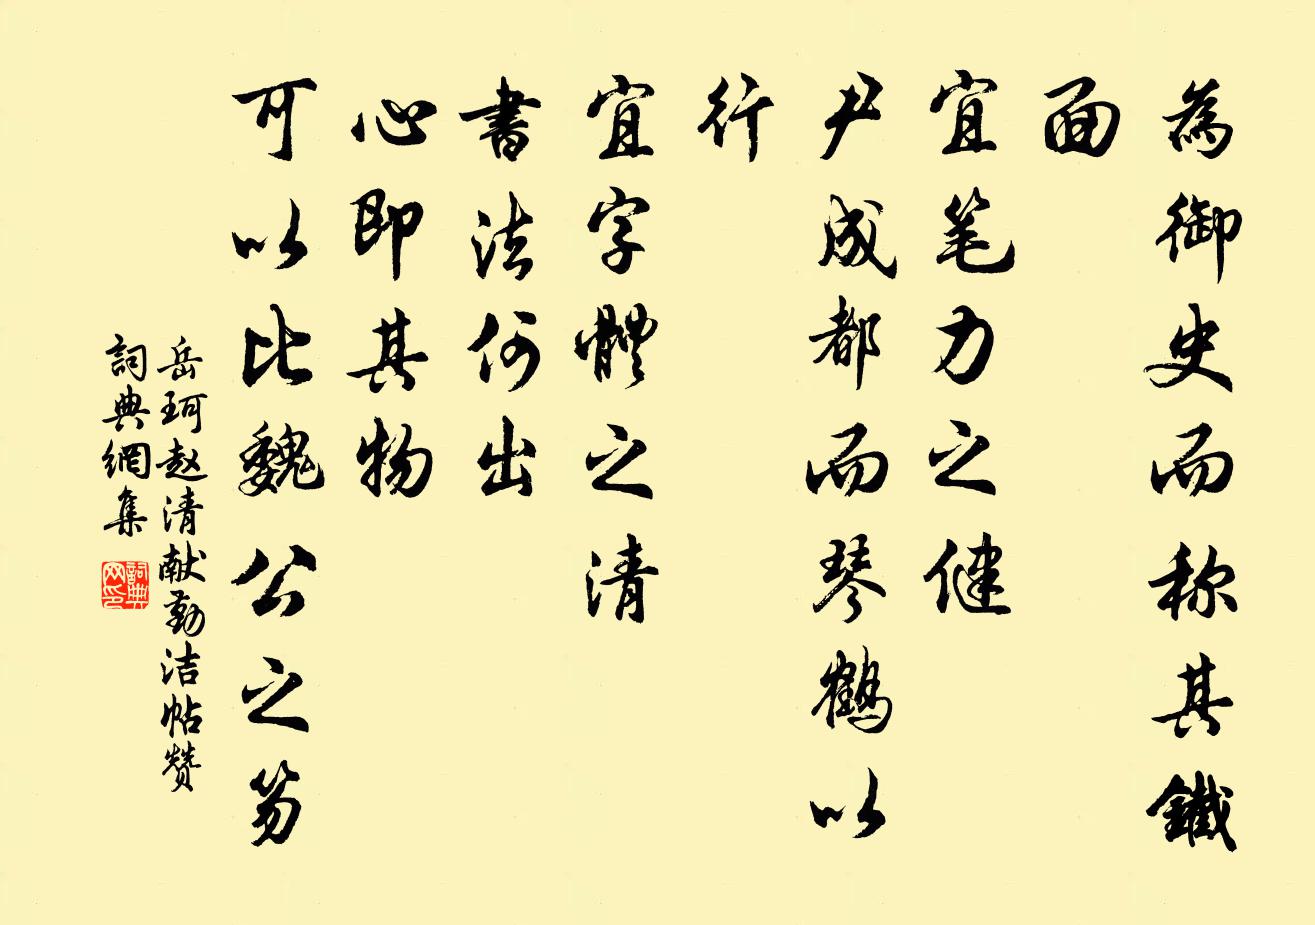 為御史而称其鐵
面
宜笔力之健
尹成都而琴鶴以
行
宜字體之清
書法何出
心即其物
可以比魏公之笏
岳珂赵清献勤洁帖赞
詞典網集
詞典
网印